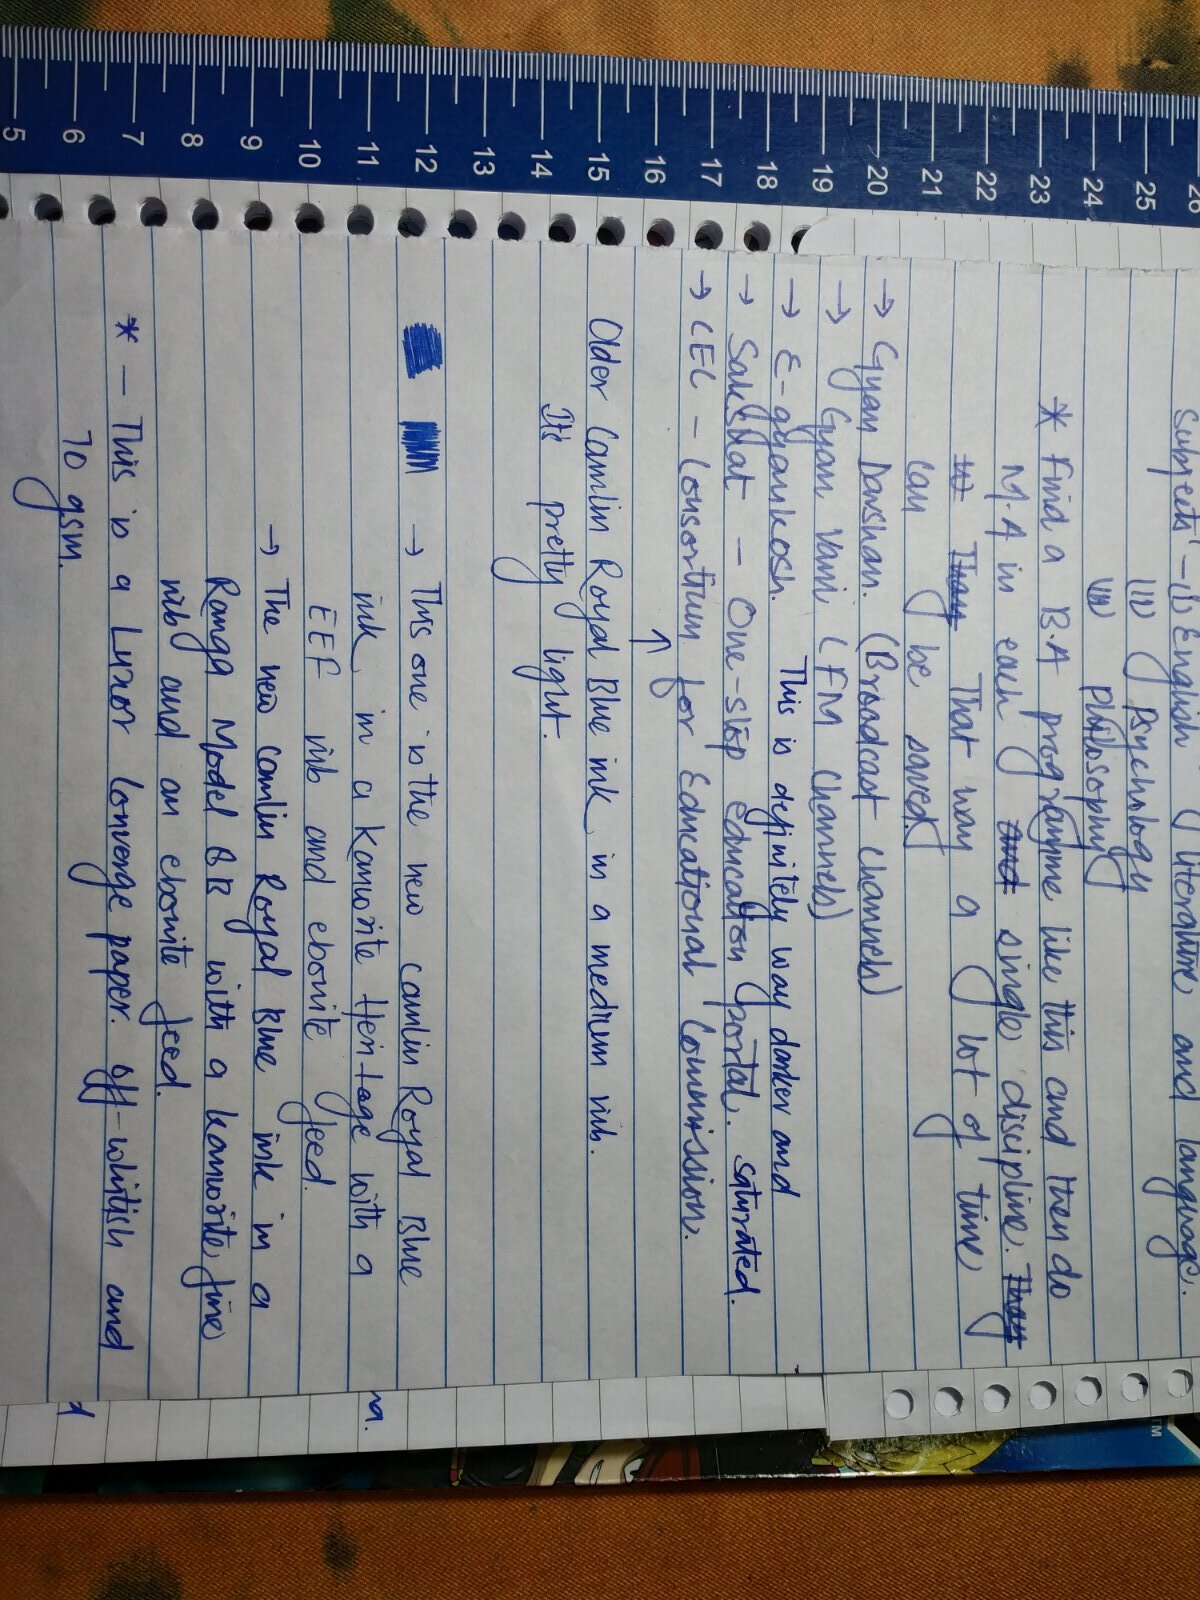 Subjects - i) English literature and language.
ii) Psychology
iii) Philosophy
* Find a B.A programme like this and then do
M.A in each and single discipline. They
in They That way a lot of time
can be saved.
→ Gyan Darshan. (Broadcast channels)
→ Gyan Vani (FM channels)
→ E-gyankosh. This is definitely way darker and
→ Sakshat - One-stop education portal. saturated.
→ CEC - Consortium for Educational Commission.
↑
Older Camlin Royal Blue ink in a medium nib.
It's pretty light.
→ This one is the new Camlin Royal Blue
ink in a Kanwrite Heritage with a
EEF nib and ebonite feed.
→ The new Camlin Royal Blue ink in a
Ranga Model 8B with a kanwrite fine
nib and an ebonite feed.
* - This is a Luxor Converge paper. Off-whitish and
70 gsm.
5 6 7 8 9 10 11 12 13 14 15 16 17 18 19 20 21 22 23 24 25 26
na.
TM